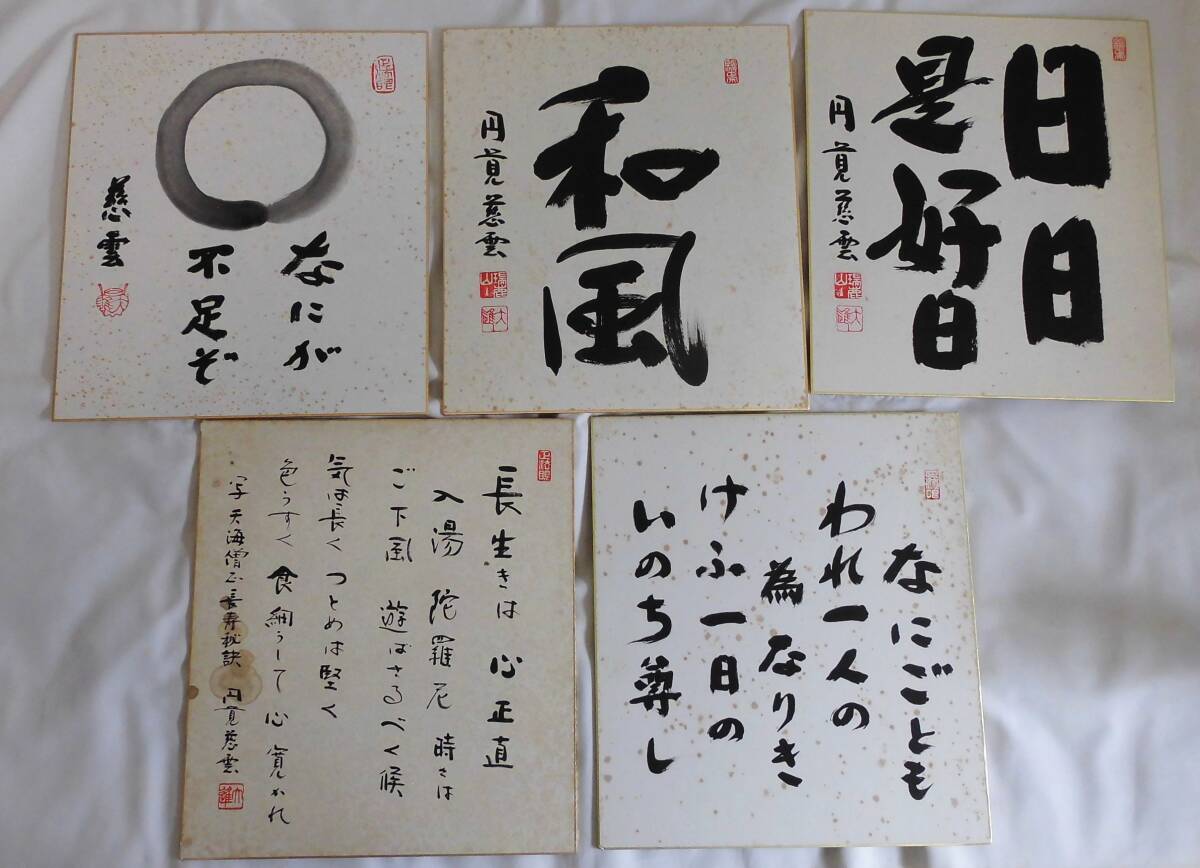 なにが
不足ぞ
慈雲
和風
円覚慈雲
日日
是好日
円覚慈雲
長生きは 心正直
入湯 陀羅尼 時さは
ご下風 遊ばさるべく候
気は長く つとめは堅く
色うすく 食細うして 心寛かれ
写 天海僧正長寿秘訣 円覚慈雲
なにごとも
われ一人の
為なりき
けふ一日の
いのち尊し